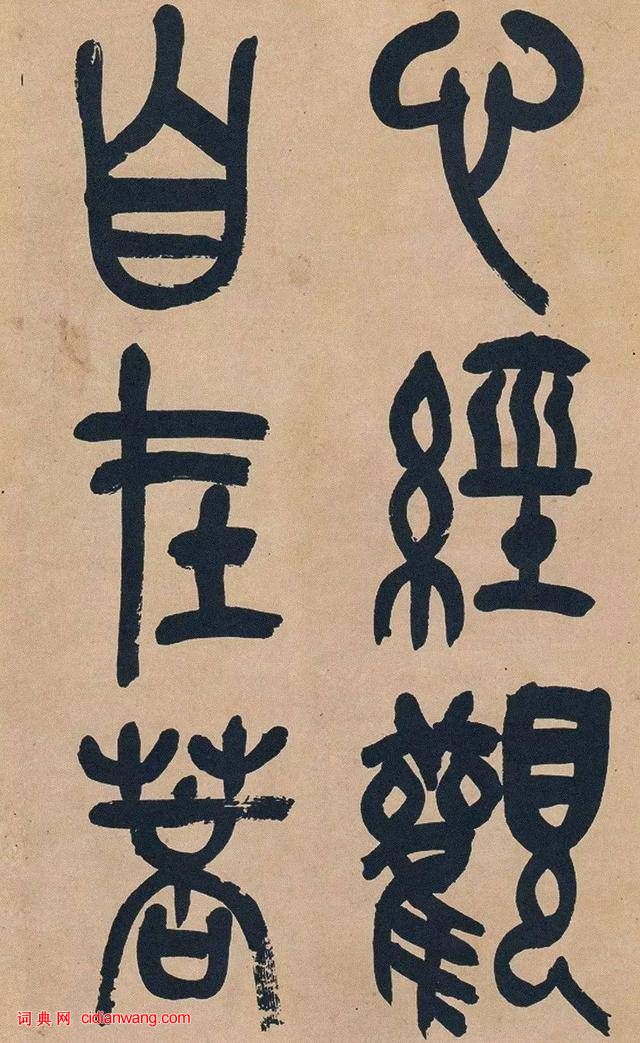 心經觀
自在菩
词典网 cidianwang.com